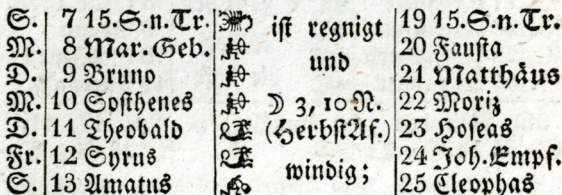 S. 7 15.S.n.Tr. ist regnigt 19 15.S.n.Tr.
M. 8 Mar.Geb. und 20 Fausta
D. 9 Bruno 21 Matthäus
M. 10 Sosthenes ☽ 3, 10 N. 22 Moriz
D. 11 Theobald (HerbstAf.) 23 Hoseas
Fr. 12 Syrus windig; 24 Joh.Empf.
S. 13 Amatus 25 Cleophas